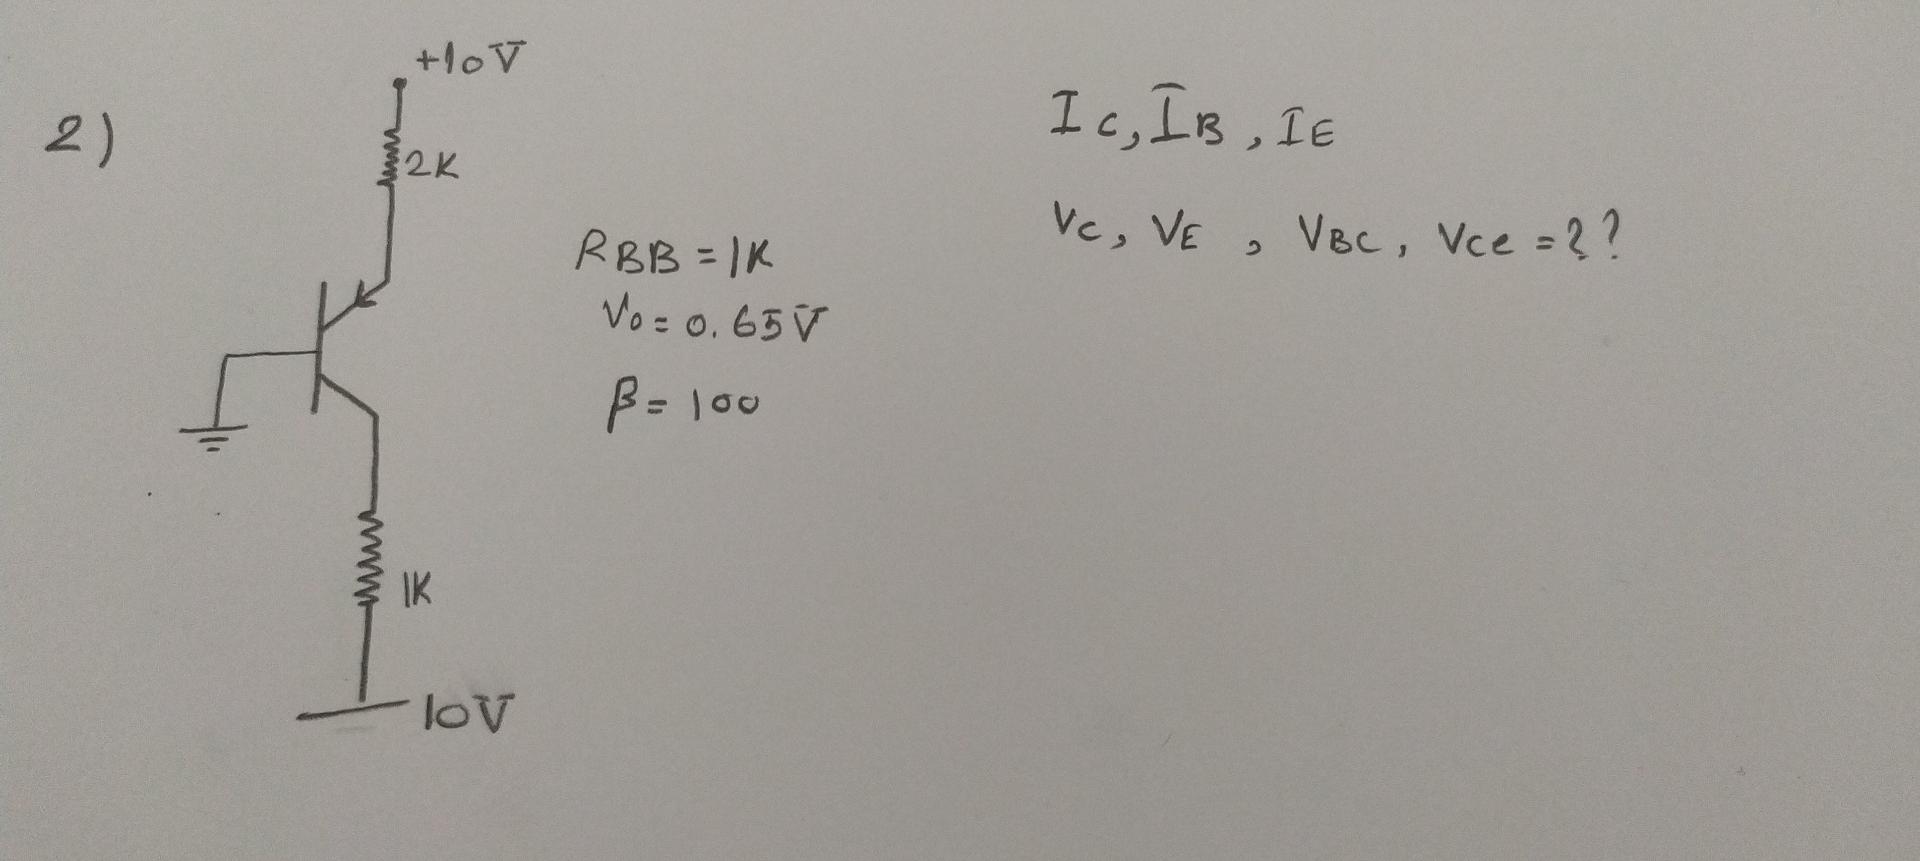 2)
+10V
2K
RBB = 1K
V0 = 0.65V
β = 100
1K
10V
IC, IB, IE
VC, VE, VBC, Vce = ??